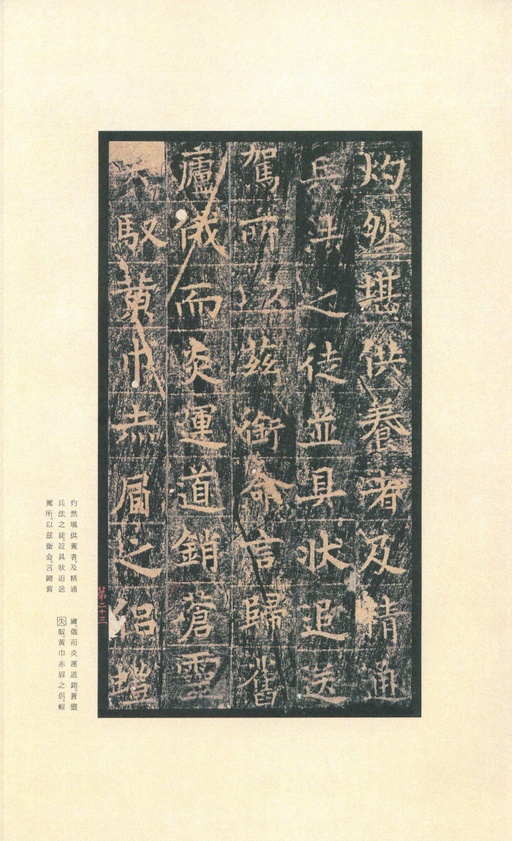 灼然堪供養者及精通
兵法之徒並具狀追送
駕所以茲銜命言歸舊
廬俄而炎運道銷蒼靈
失馭黃巾赤眉之侶蝟
第二十三
灼然堪供養者及精通
兵法之徒並具狀追送
駕所以茲銜命言歸舊
廬俄而炎運道銷蒼靈
失馭黃巾赤眉之侶